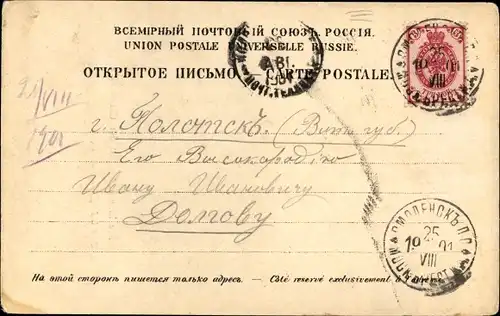 ВСЕМІРНЫЙ ПОЧТОВЫЙ СОЮЗЪ. РОССІЯ.
UNION POSTALE UNIVERSELLE RUSSIE.
ОТКРЫТОЕ ПИСЬМО CARTE POSTALE.
АВГ.
25
19 01
VIII
VIII
г. Полотскъ (Вит. губ.)
Его Высокородію
Ивану Ивановичу
Долгову
СМОЛЕНСКЪ
25
19 01
VIII
На этой сторонѣ пишется только адресъ. — Côté réservé exclusivement